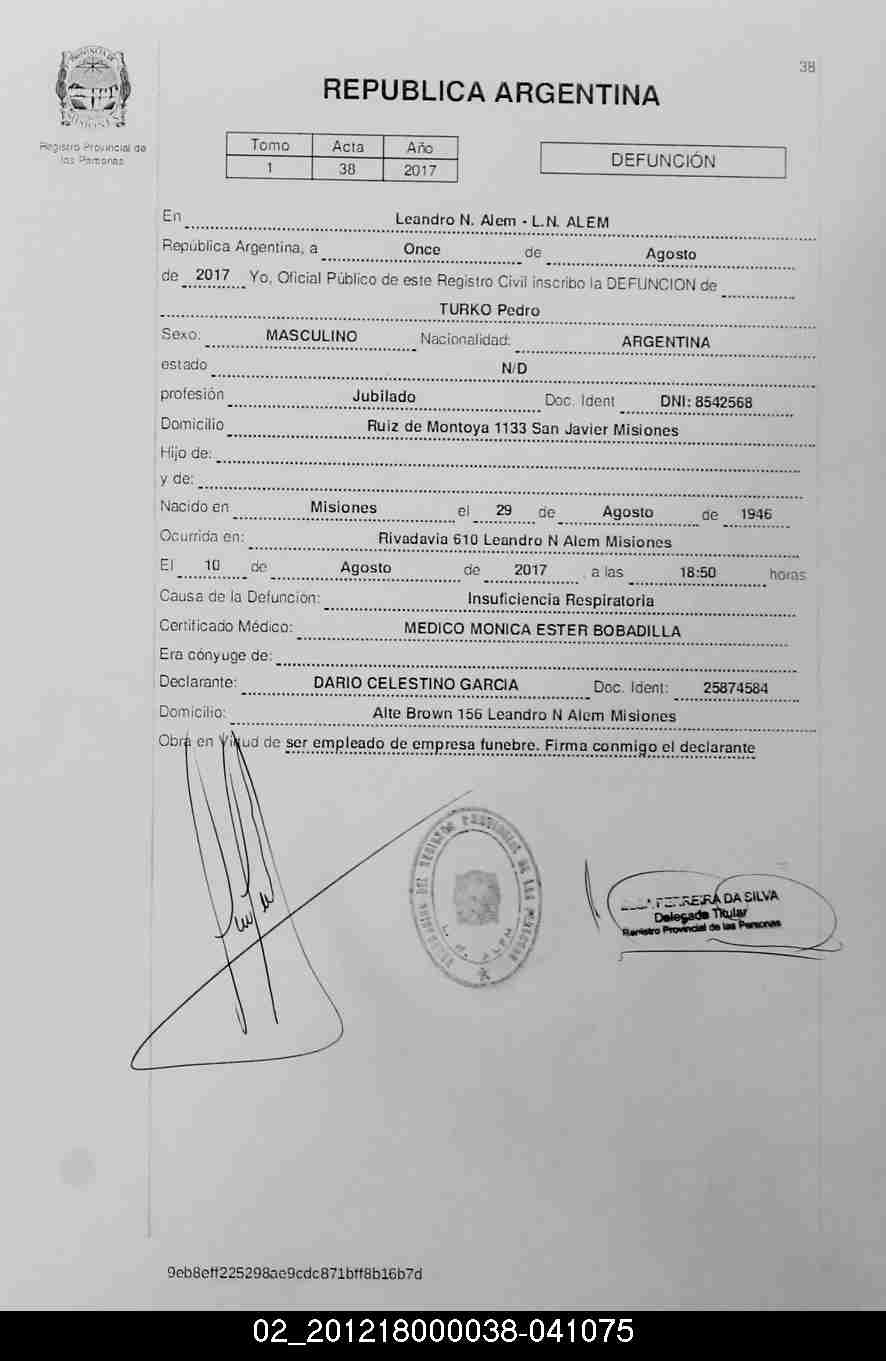 38
REPUBLICA ARGENTINA
Registro Provincial de
las Personas
Tomo Acta Año
1 38 2017
DEFUNCIÓN
En Leandro N. Alem - L.N. ALEM
República Argentina, a Once de Agosto
de 2017 Yo, Oficial Público de este Registro Civil inscribo la DEFUNCION de
TURKO Pedro
Sexo: MASCULINO Nacionalidad: ARGENTINA
estado N/D
profesión Jubilado Doc. Ident DNI: 8542568
Domicilio Ruiz de Montoya 1133 San Javier Misiones
Hijo de:
y de:
Nacido en Misiones el 29 de Agosto de 1946
Ocurrida en: Rivadavia 610 Leandro N Alem Misiones
El 10 de Agosto de 2017 , a las 18:50 horas
Causa de la Defunción: Insuficiencia Respiratoria
Certificado Médico: MEDICO MONICA ESTER BOBADILLA
Era cónyuge de:
Declarante: DARIO CELESTINO GARCIA Doc. Ident: 25874584
Domicilio: Alte Brown 156 Leandro N Alem Misiones
Obra en Virtud de ser empleado de empresa funebre. Firma conmigo el declarante
L. N. ALEM
FERREIRA DA SILVA
Delegada Titular
Registro Provincial de las Personas
9eb8eff225298ae9cdc871bff8b16b7d
02_201218000038-041075